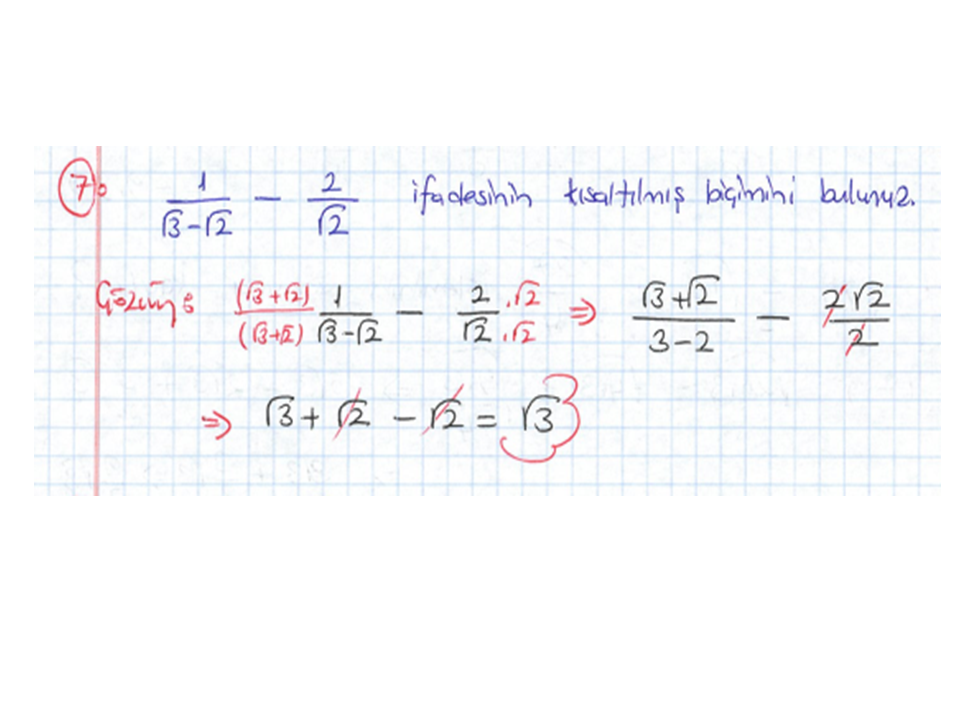 7. 1/(√3-√2) - 2/√2 ifadesinin kısaltılmış biçimini bulunuz.
Çözüm: (√3+√2)/(√3+√2) 1/(√3-√2) - 2/√2 .√2/.√2 ⇒ (√3+√2)/(3-2) - 2√2/2
⇒ √3+√2-√2=√3